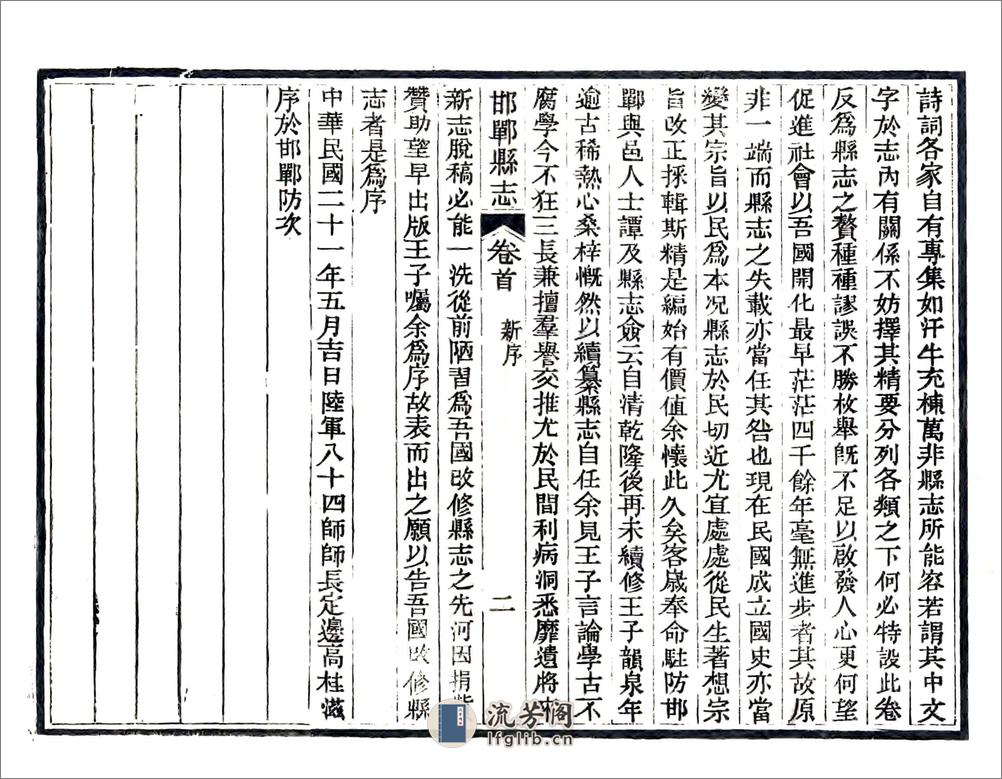 詩詞各家自有專集如汗牛充棟萬非縣志所能容若謂其中文
字於志內有關係不妨擇其精要分列各類之下何必特設此卷
反爲縣志之贅種種謬誤不勝枚舉旣不足以啟發人心更何望
促進社會以吾國開化最早茫茫四千餘年毫無進步者其故原
非一端而縣志之失載亦當任其咎也現在民國成立國史亦當
變其宗旨以民爲本况縣志於民切近尤宜處處從民生著想宗
旨改正採輯斯精是編始有價值余懷此久矣客歲奉命駐防邯
鄲與邑人士譚及縣志僉云自清乾隆後再未續修王子韻泉年
逾古稀熱心桑梓慨然以續纂縣志自任余見王子言論學古不
腐學今不狂三長兼擅羣譽交推尤於民間利病洞悉靡遺將來
邯鄲縣志 卷首 新序 二
新志脫稿必能一洗從前陋習爲吾國改修縣志之先河因捐
贊助望早出版王子囑余爲序故表而出之願以告吾國改修縣
志者是爲序
中華民國二十一年五月吉日陸軍八十四師師長定邊高桂滋
序於邯鄲防次
流芳阁
lfglib.cn